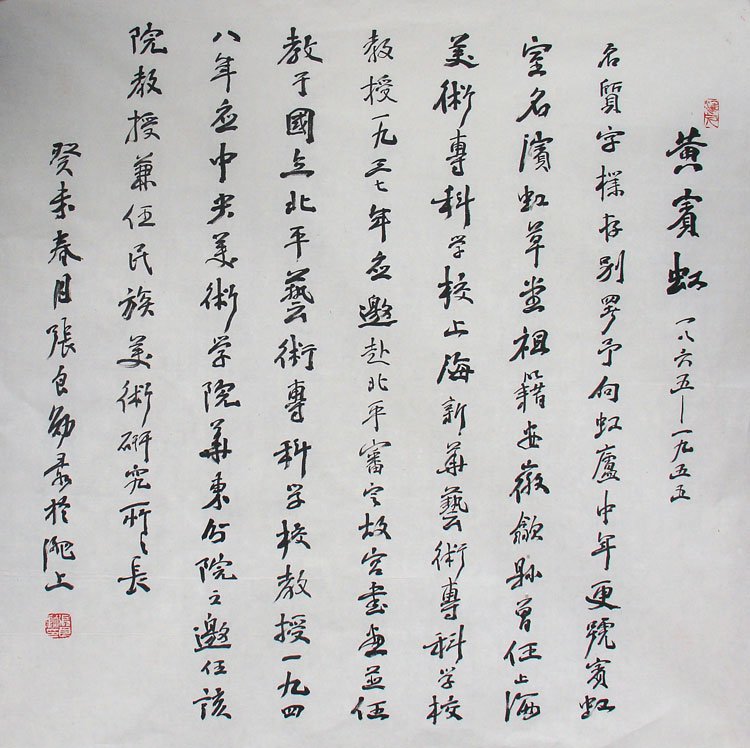 黄賓虹 一八六五—一九五五
名質字樸存別署予向虹廬中年更號賓虹
室名濱虹草堂祖籍安徽歙縣曾任上海
美術專科学校上海新華藝術專科学校
教授一九三七年应邀赴北平審定故宮書画並任
教于國立北平藝術專科学校教授一九四
八年应中央美術学院華東分院之邀任該
院教授兼任民族美術研究所所長
癸未春月張良勋录於淝上